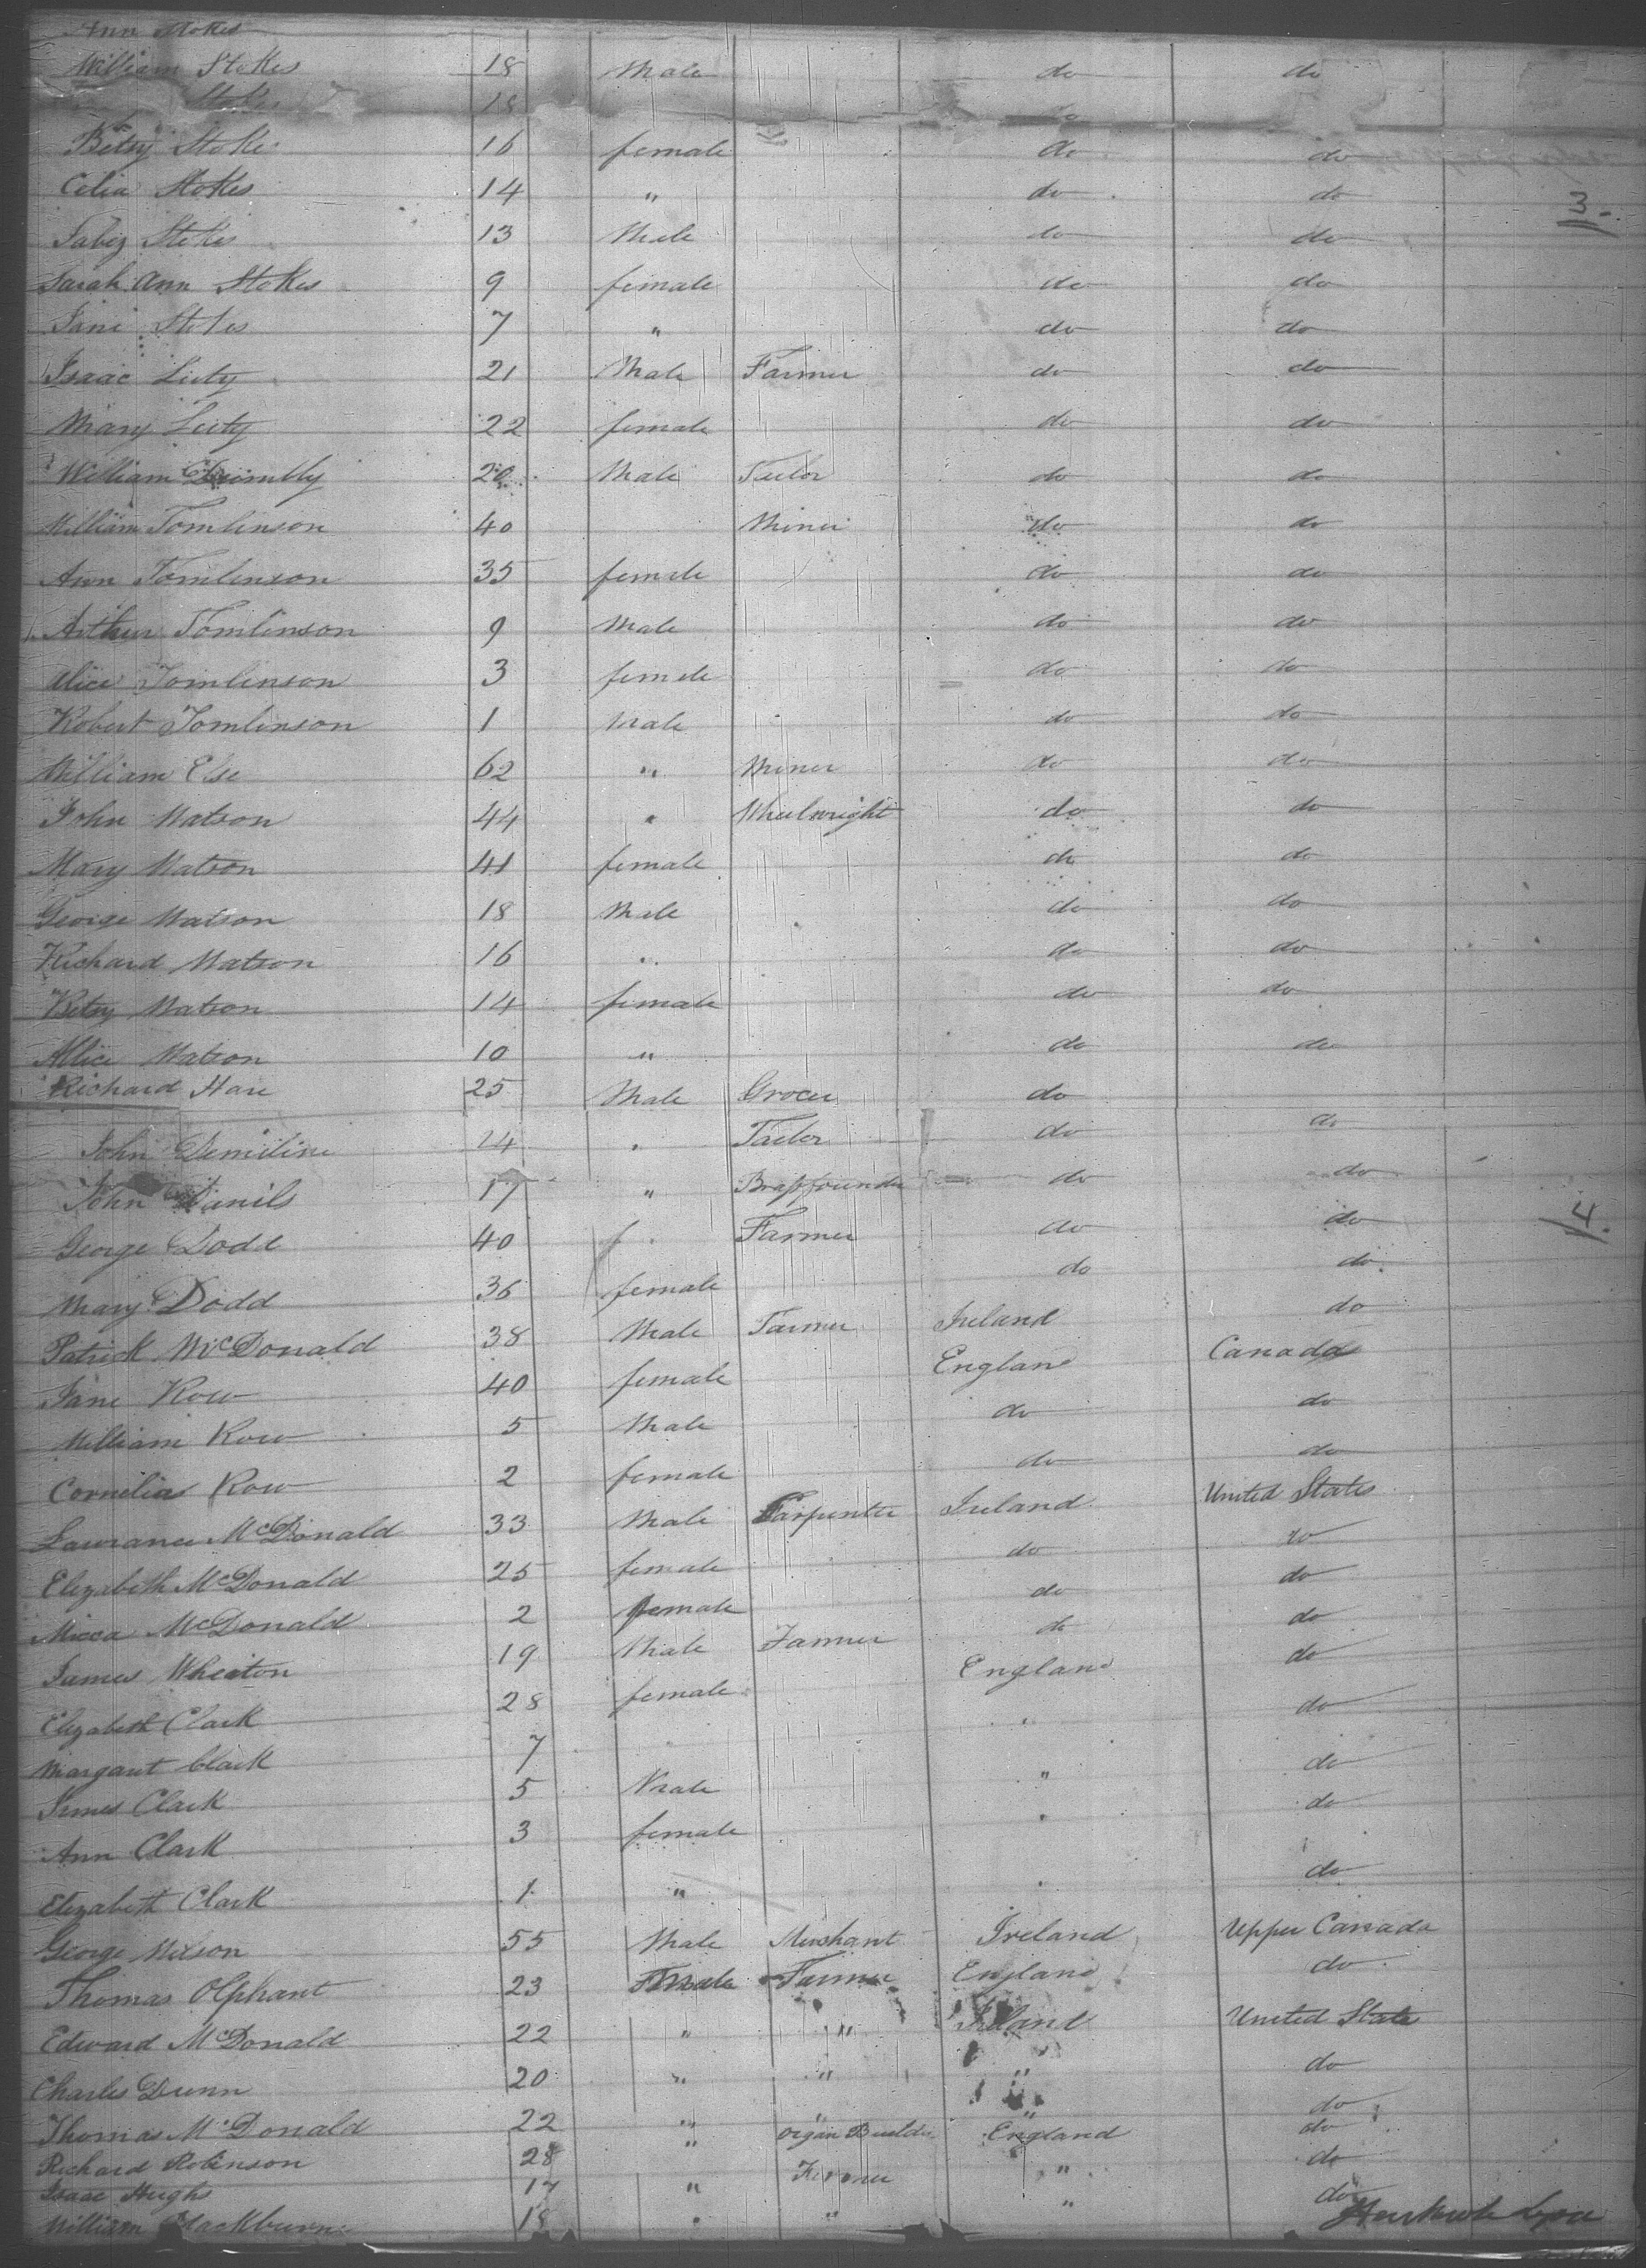 Ann Stokes
William Stokes 18 Male do do
Stokes 18 do
Betsy Stokes 16 female do do
Celia Stokes 14 " do do
3.
Jabez Stokes 13 Male do do
Sarah Ann Stokes 9 female do do
Jane Stokes 7 " do do
Isaac Luty 21 Male Farmer do do
Mary Luty 22 female do do
William 20 Male Tailor do do
William Tomlinson 40 Miner do do
Ann Tomlinson 35 female do do
Arthur Tomlinson 9 Male do do
Alice Tomlinson 3 female do do
Robert Tomlinson 1 Male do do
William Else 62 " Miner do do
John Watson 44 " Wheelwright do do
Mary Watson 41 female do do
George Watson 18 Male do do
Richard Watson 16 " do do
Betsy Watson 14 female do do
Allice Watson 10 " do do
Richard Hare 25 Male Grocer do
John 24 " Tailor do do
John Danils 17 " Brassfounder do do
4.
George Dodd 40 Farmer do do
Mary Dodd 36 female do do
Patrick McDonald 38 Male Farmer Ireland do
Jane Row 40 female England Canada
William Row 5 Male do do
Cornelia Row 2 female do do
Lawrance McDonald 33 Male Carpenter Ireland United States
Elizabeth McDonald 25 female do do
Micca McDonald 2 female do do
James Wheaton 19 Male Farmer do do
Elizabeth Clark 28 female England do
Margaret Clark 7 " do
James Clark 5 Male " do
Ann Clark 3 female " do
Elizabeth Clark 1 " " do
George Wilson 55 Male Merchant Ireland Upper Canada
Thomas Olphant 23 Male Farmer England do
Edward McDonald 22 " " Ireland United States
Charles Dunn 20 " " " do
Thomas McDonald 22 " " " do
Richard Robinson 28 " Organ Builder England do
Isaac Hughs 17 " Farmer " do
William Blackburn 18 " " " do